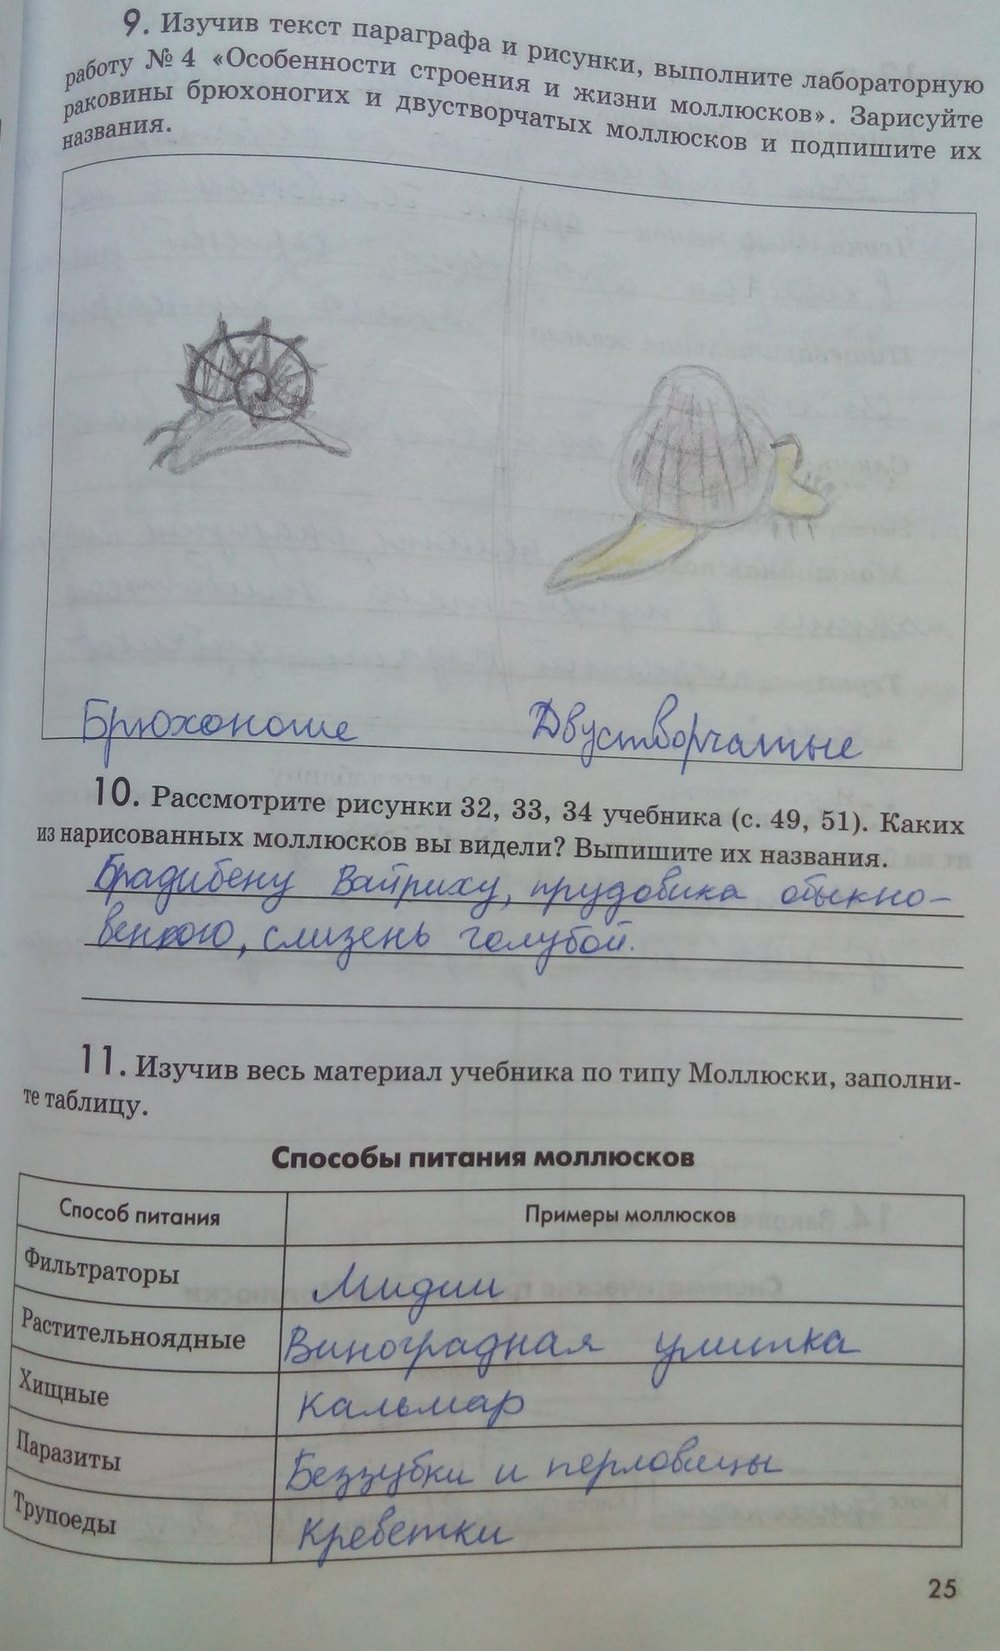 9. Изучив текст параграфа и рисунки, выполните лабораторную
работу № 4 «Особенности строения и жизни моллюсков». Зарисуйте
раковины брюхоногих и двустворчатых моллюсков и подпишите их
названия.
Брюхоногие
Двустворчатые
10. Рассмотрите рисунки 32, 33, 34 учебника (с. 49, 51). Каких
из нарисованных моллюсков вы видели? Выпишите их названия.
Брадибену Вайриху, прудовика обыкно-
венного, слизень голубой.
11. Изучив весь материал учебника по типу Моллюски, заполни-
те таблицу.
Способы питания моллюсков
Способ питания
Примеры моллюсков
Фильтраторы
Мидии
Растительноядные
Виноградная улитка
Хищные
Кальмар
Паразиты
Беззубки и перловицы
Трупоеды
Креветки
25